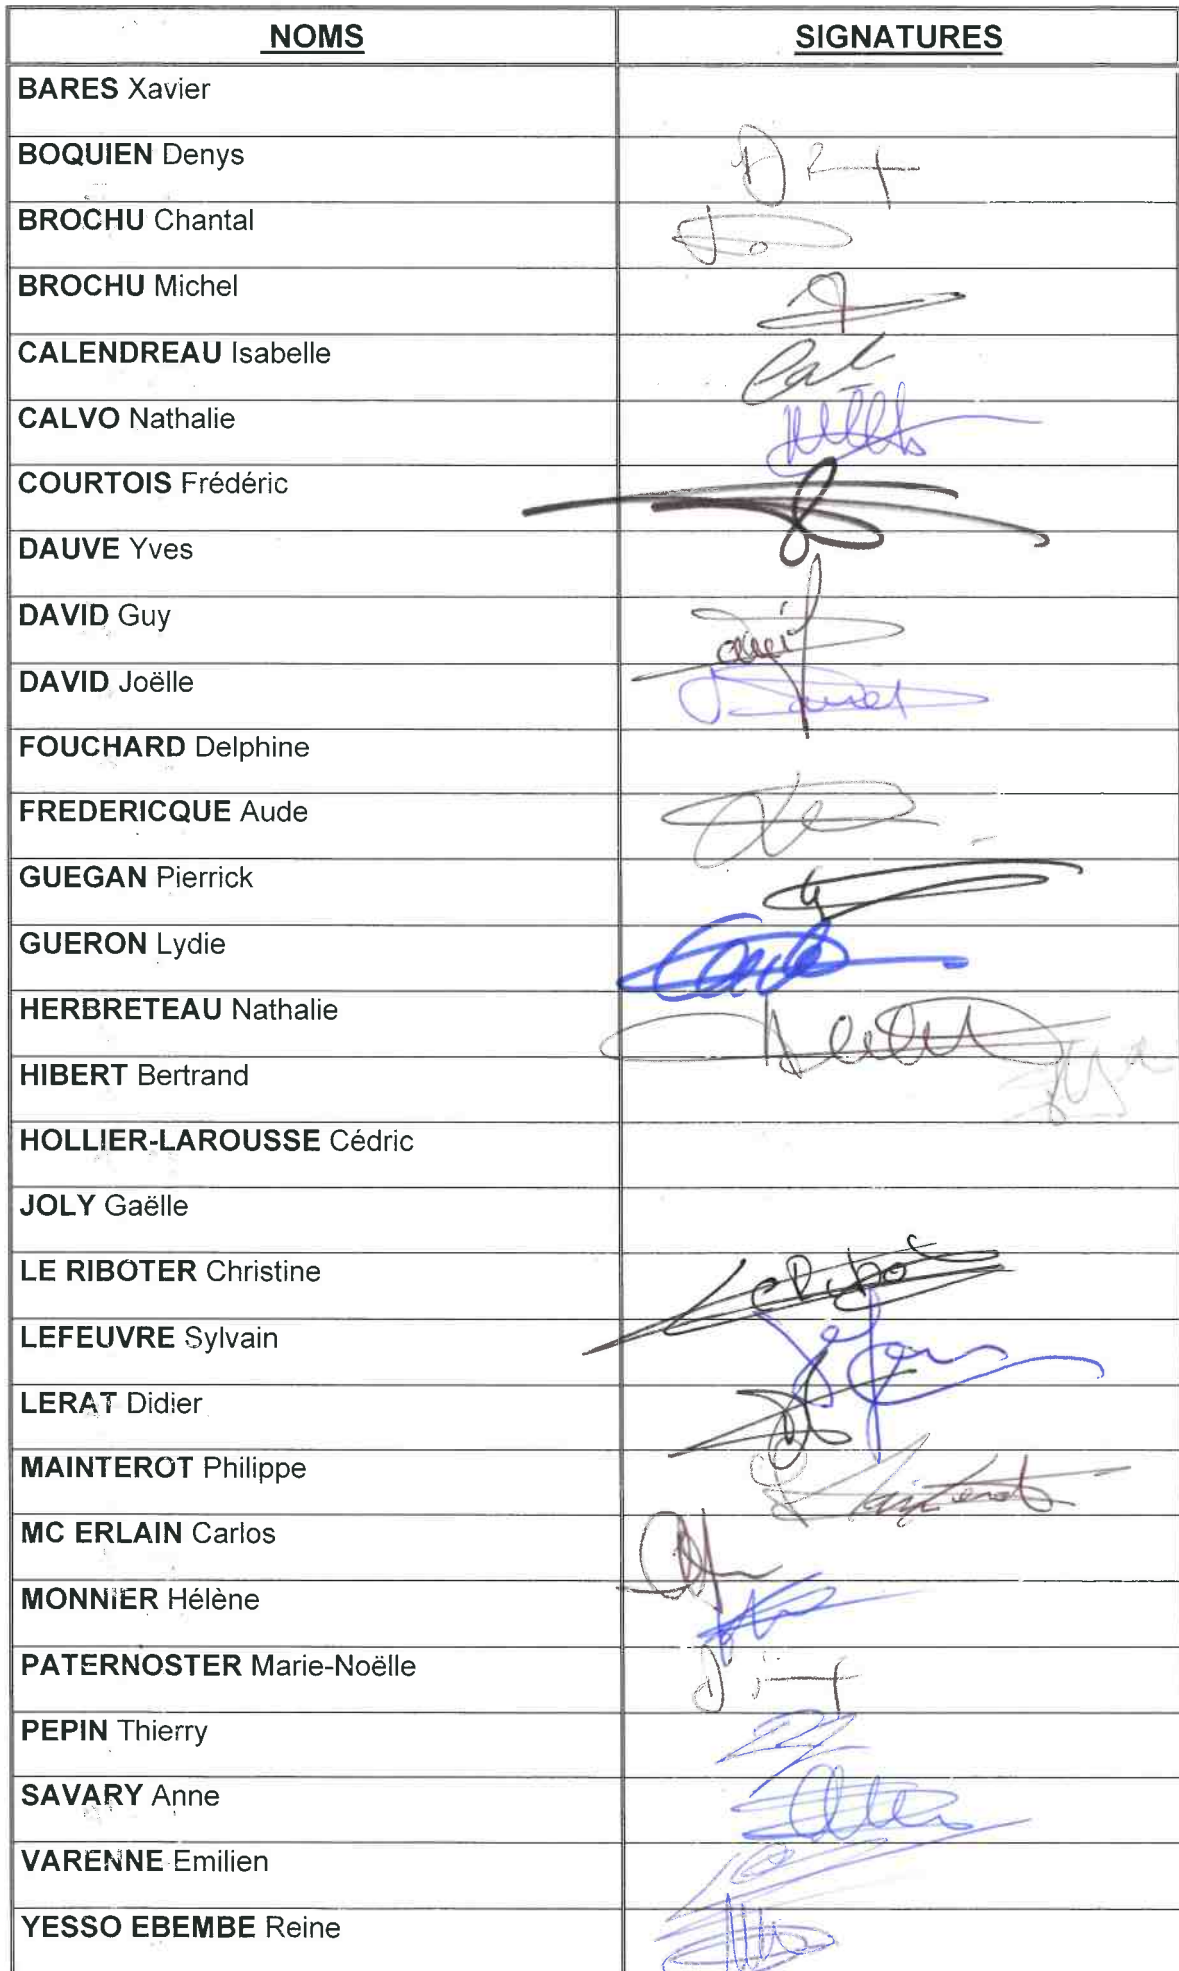 NOMS SIGNATURES
BARES Xavier
BOQUIEN Denys
BROCHU Chantal
BROCHU Michel
CALENDREAU Isabelle
CALVO Nathalie
COURTOIS Frédéric
DAUVE Yves
DAVID Guy
DAVID Joëlle
FOUCHARD Delphine
FREDERICQUE Aude
GUEGAN Pierrick
GUERON Lydie
HERBRETEAU Nathalie
HIBERT Bertrand
HOLLIER-LAROUSSE Cédric
JOLY Gaëlle
LE RIBOTER Christine
LEFEUVRE Sylvain
LERAT Didier
MAINTEROT Philippe
MC ERLAIN Carlos
MONNIER Hélène
PATERNOSTER Marie-Noëlle
PEPIN Thierry
SAVARY Anne
VARENNE Emilien
YESSO EBEMBE Reine